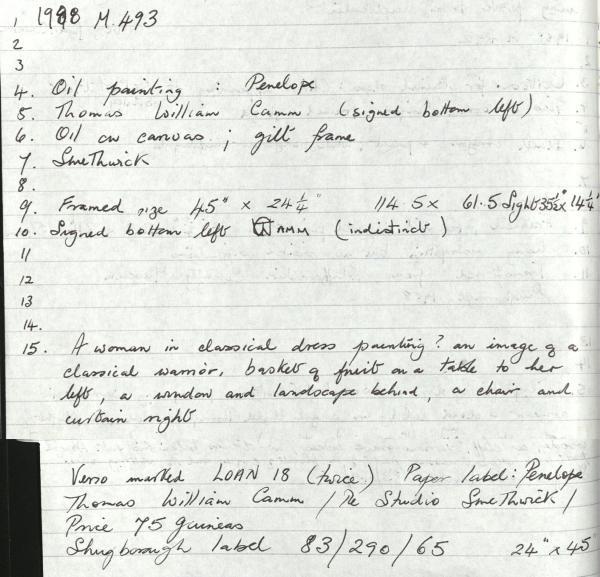 1 1988 M.493
2
3
4. Oil painting : Penelope
5. Thomas William Camm (signed bottom left)
6. Oil on canvas ; gilt frame
7. Smethwick
8.
9. Framed size 45" x 24¼" 114.5 x 61.5 Sight 35½" x 14¼"
10. Signed bottom left AMM (indistinct)
11
12
13
14.
15. A woman in classical dress painting? an image of a
classical warrior, basket of fruit on a table to her
left, a window and landscape behind, a chair and
curtain right
Verso marked LOAN 18 (twice) Paper label: Penelope
Thomas William Camm / The Studio Smethwick /
Price 75 guineas
Shugborough label 83/290/65 24" x 45"